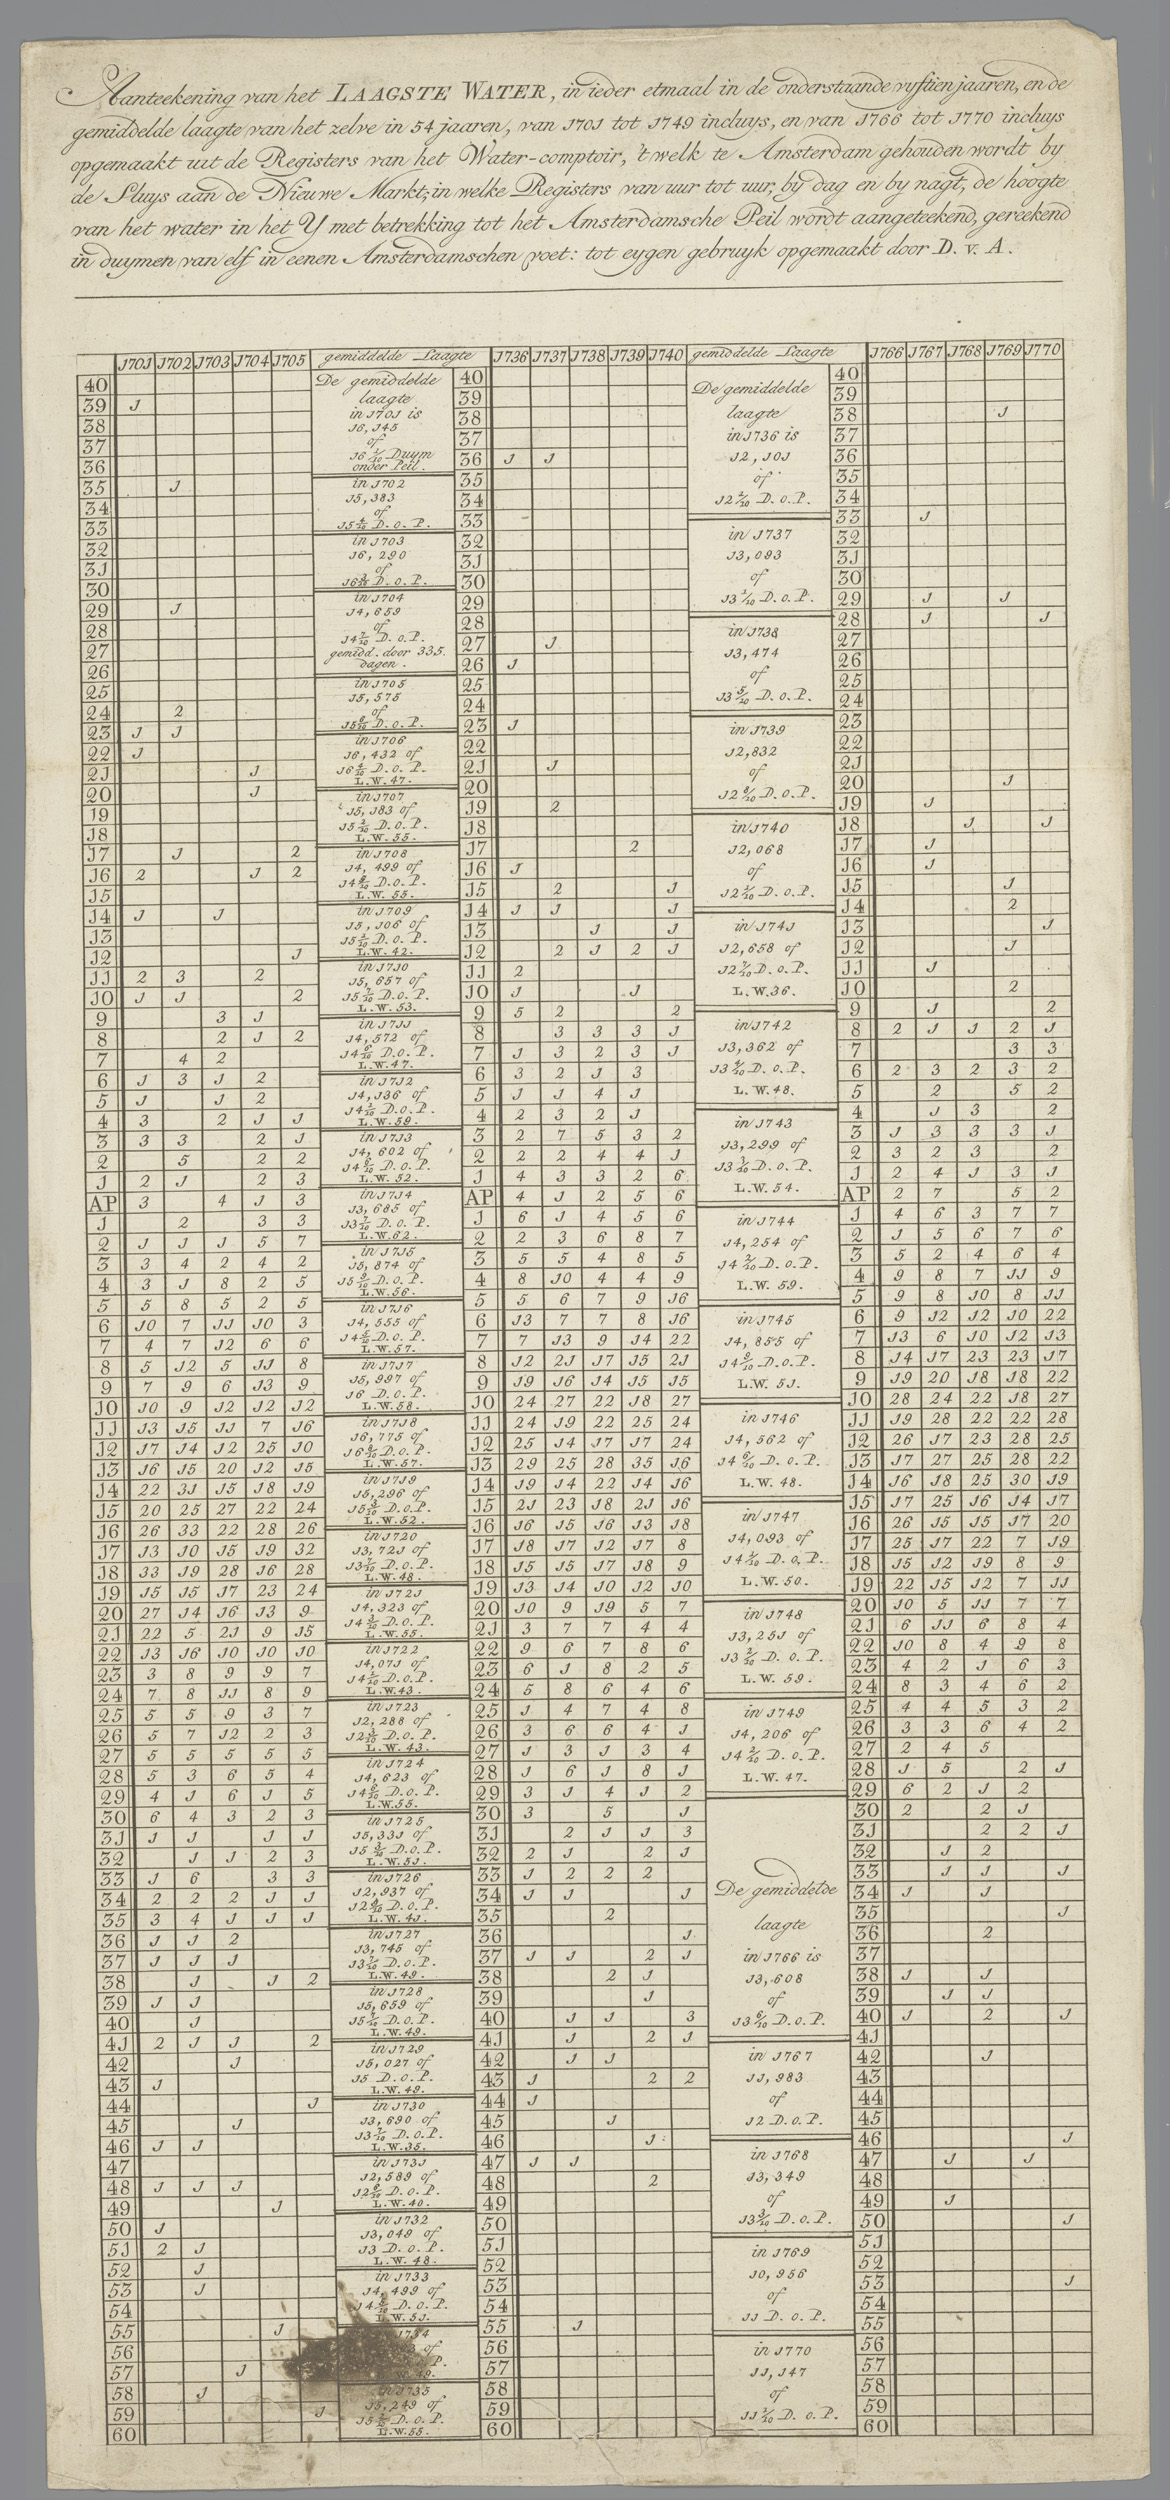 Aanteekening van het LAAGSTE WATER, in ieder etmaal in de onderstaande vyftien jaaren, en de
gemiddelde laagte van het zelve in 54 jaaren, van 1701 tot 1749 incluys, en van 1766 tot 1770 incluys
opgemaakt uit de Registers van het Water-comptoir, 't welk te Amsterdam gehouden wordt by
de Sluys aan de Nieuwe Markt; in welke Registers van uur tot uur, by dag en by nagt, de hoogte
van het water in het Y met betrekking tot het Amsterdamsche Peil wordt aangeteekend, gereekend
in duymen van elf in eenen Amsterdamschen voet: tot eygen gebruyk opgemaakt door D. v. A.
1701 1702 1703 1704 1705
40
39 1
38
37
36
35 1
34
33
32
31
30
29 1
28
27
26
25
24 2
23 1 1
22 1
21 1
20 1
19
18
17 1 2
16 2 1 2
15
14 1 1
13
12 1
11 2 3 2
10 1 1 2
9 3 1
8 2 1 2
7 4 2
6 1 3 1 2
5 1 1 2
4 3 2 1 1
3 3 3 2 1
2 5 2 2
1 2 1 2 3
AP 3 4 1 3
1 2 3 3
2 1 1 1 5 7
3 3 4 2 4 2
4 3 1 8 2 5
5 5 8 5 2 5
6 10 7 11 10 3
7 4 7 12 6 6
8 5 12 5 11 8
9 7 9 6 13 9
10 10 9 12 12 12
11 13 15 11 7 16
12 17 14 12 25 10
13 16 15 20 12 15
14 22 31 15 18 19
15 20 25 27 22 24
16 26 33 22 28 26
17 13 10 15 19 32
18 33 19 28 16 28
19 15 15 17 23 24
20 27 14 16 13 9
21 22 5 21 9 15
22 13 16 10 10 10
23 3 8 9 9 7
24 7 8 11 8 9
25 5 5 9 3 7
26 5 7 12 2 3
27 5 5 5 5 5
28 5 3 6 5 4
29 4 1 6 1 5
30 6 4 3 2 3
31 1 1 1 1
32 1 1 2 3
33 1 6 3 3
34 2 2 2 1 1
35 3 4 1 1 1
36 1 1 2
37 1 1 1
38 1 1 2
39 1 1
40 1
41 2 1 1 2
42 1
43 1
44 1
45 1
46 1 1
47
48 1 1 1
49 1
50 1
51 2 1
52 1
53 1
54
55 1
56
57 1
58 1
59 1
60
gemiddelde Laagte
De gemiddelde
laagte
in 1701 is
16,145
of
16 1/10 Duym
onder Peil.
in 1702
15,383
of
15 4/10 D. o. P.
in 1703
16,290
of
16 3/10 D. o. P.
in 1704
14,659
of
14 7/10 D. o. P.
gemidd. door 335.
dagen.
in 1705
15,575
of
15 6/10 D. o. P.
in 1706
16,432 of
16 4/10 D. o. P.
L. W. 47.
in 1707
15,183 of
15 2/10 D. o. P.
L. W. 55.
in 1708
14,499 of
D. o. P.
L. W. 55.
in 1709
15,106 of
15 1/10 D. o. P.
L. W. 42.
in 1710
15,657 of
15 7/10 D. o. P.
L. W. 53.
in 1711
14,572 of
14 6/10 D. o. P.
L. W. 47.
in 1712
14,136 of
14 1/10 D. o. P.
L. W. 59.
in 1713
14,602 of
14 6/10 D. o. P.
L. W. 52.
in 1714
13,685 of
13 7/10 D. o. P.
L. W. 62.
in 1715
15,874 of
15 9/10 D. o. P.
L. W. 56.
in 1716
14,555 of
14 6/10 D. o. P.
L. W. 57.
in 1717
15,997 of
16 D. o. P.
L. W. 58.
in 1718
16,775 of
16 8/10 D. o. P.
L. W. 57.
in 1719
15,296 of
15 3/10 D. o. P.
L. W. 52.
in 1720
13,721 of
13 7/10 D. o. P.
L. W. 48.
in 1721
14,323 of
14 3/10 D. o. P.
L. W. 55.
in 1722
14,071 of
14 1/10 D. o. P.
L. W. 43.
in 1723
12,288 of
12 3/10 D. o. P.
L. W. 43.
in 1724
14,623 of
14 6/10 D. o. P.
L. W. 55.
in 1725
15,331 of
15 3/10 D. o. P.
L. W. 51.
in 1726
12,937 of
12 9/10 D. o. P.
L. W. 41.
in 1727
13,745 of
13 7/10 D. o. P.
L. W. 49.
in 1728
15,659 of
15 7/10 D. o. P.
L. W. 49.
in 1729
15,027 of
15 D. o. P.
L. W. 49.
in 1730
13,690 of
13 7/10 D. o. P.
L. W. 35.
in 1731
12,589 of
12 6/10 D. o. P.
L. W. 40.
in 1732
13,049 of
13 D. o. P.
L. W. 48.
in 1733
14,499 of
14 5/10 D. o. P.
L. W. 51.
1734
of
P.
49.
in 1735
15,249 of
15 2/10 D. o. P.
L. W. 55.
1736 1737 1738 1739 1740
40
39
38
37
36 1 1
35
34
33
32
31
30
29
28
27 1
26 1
25
24
23 1
22
21 1
20
19 2
18
17 2
16 1
15 2 1
14 1 1 1
13 1 1
12 2 1 2 1
11 2
10 1 1
9 5 2 2
8 3 3 3 1
7 1 3 2 3 1
6 3 2 1 3
5 1 1 4 1
4 2 3 2 1
3 2 7 5 3 2
2 2 2 4 4 1
1 4 3 3 2 6
AP 4 1 2 5 6
1 6 1 4 5 6
2 2 3 6 8 7
3 5 5 4 8 5
4 8 10 4 4 9
5 5 6 7 9 16
6 13 7 7 8 16
7 7 13 9 14 22
8 12 21 17 15 21
9 19 16 14 15 15
10 24 27 22 18 27
11 24 19 22 25 24
12 25 14 17 17 24
13 29 25 28 35 16
14 19 14 22 14 16
15 21 23 18 21 16
16 16 15 16 13 18
17 18 17 12 17 8
18 15 15 17 18 9
19 13 14 10 12 10
20 10 9 19 5 7
21 3 7 7 4 4
22 9 6 7 8 6
23 6 1 8 2 5
24 5 8 6 4 6
25 1 4 7 4 8
26 3 6 6 4 1
27 1 3 1 3 4
28 1 6 1 8 1
29 3 1 4 1 2
30 3 5 1
31 2 1 1 3
32 2 1 2 1
33 1 2 2 2
34 1 1 1
35 2
36 1
37 1 1 2 1
38 2 1
39 1
40 1 1 3
41 1 2 1
42 1 1
43 1 2 2
44 1
45 1
46 1
47 1 1
48 2
49
50
51
52
53
54
55 1
56
57
58
59
60
gemiddelde Laagte
De gemiddelde
laagte
in 1736 is
12,101
of
12 1/10 D. o. P.
in 1737
13,093
of
13 1/10 D. o. P.
in 1738
13,474
of
13 5/10 D. o. P.
in 1739
12,832
of
12 8/10 D. o. P.
in 1740
12,068
of
12 1/10 D. o. P.
in 1741
12,658 of
12 7/10 D. o. P.
L. W. 36.
in 1742
13,362 of
13 4/10 D. o. P.
L. W. 48.
in 1743
13,299 of
13 3/10 D. o. P.
L. W. 54.
in 1744
14,254 of
14 2/10 D. o. P.
L. W. 59.
in 1745
14,855 of
14 9/10 D. o. P.
L. W. 51.
in 1746
14,562 of
14 6/10 D. o. P.
L. W. 48.
in 1747
14,093 of
14 1/10 D. o. P.
L. W. 50.
in 1748
13,251 of
13 2/10 D. o. P.
L. W. 59.
in 1749
14,206 of
14 2/10 D. o. P.
L. W. 47.
De gemiddelde
laagte
in 1766 is
13,608
of
13 6/10 D. o. P.
in 1767
11,983
of
12 D. o. P.
in 1768
13,349
of
13 3/10 D. o. P.
in 1769
10,956
of
11 D. o. P.
in 1770
11,147
of
11 1/10 D. o. P.
1766 1767 1768 1769 1770
40
39
38 1
37
36
35
34
33 1
32
31
30
29 1 1
28 1 1
27
26
25
24
23
22
21
20 1
19 1
18 1 1
17 1
16 1
15 1
14 2
13 1
12 1
11 1
10 2
9 1 2
8 2 1 1 2 1
7 3 3
6 2 3 2 3 2
5 2 5 2
4 1 3 2
3 1 3 3 3 1
2 3 2 3 2
1 2 4 1 3 1
AP 2 7 5 2
1 4 6 3 7 7
2 1 5 6 7 6
3 5 2 4 6 4
4 9 8 7 11 9
5 9 8 10 8 11
6 9 12 12 10 22
7 13 6 10 12 13
8 14 17 23 23 17
9 19 20 18 18 22
10 28 24 22 18 27
11 19 28 22 22 28
12 26 17 23 28 25
13 17 27 25 28 22
14 16 18 25 30 19
15 17 25 16 14 17
16 26 15 15 17 20
17 25 17 22 7 19
18 15 12 19 8 9
19 22 15 12 7 11
20 10 5 11 7 7
21 6 11 6 8 4
22 10 8 4 9 8
23 4 2 1 6 3
24 8 3 4 6 2
25 4 4 5 3 2
26 3 3 6 4 2
27 2 4 5
28 1 5 2 1
29 6 2 1 2
30 2 2 1
31 2 2 1
32 1 2
33 1 1 1
34 1 1
35 1
36 2
37
38 1 1
39 1 1
40 1 2 1
41
42 1
43
44
45
46 1
47 1 1
48
49 1
50 1
51
52
53 1
54
55
56
57
58
59
60